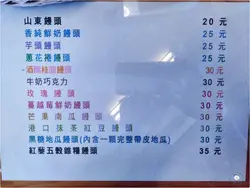 山東饅頭 20 元
香純鮮奶饅頭 25 元
芋頭饅頭 25 元
蔥花捲饅頭 25 元
酒釀桂圓饅頭 30 元
牛奶巧克力 30 元
玫瑰饅頭 30 元
蔓越莓鮮奶饅頭 30 元
芒果南瓜饅頭 30 元
港口抹茶紅豆饅頭 30 元
黑糖地瓜饅頭(內含一顆完整帶皮地瓜) 30 元
紅藜五穀雜糧饅頭 35 元